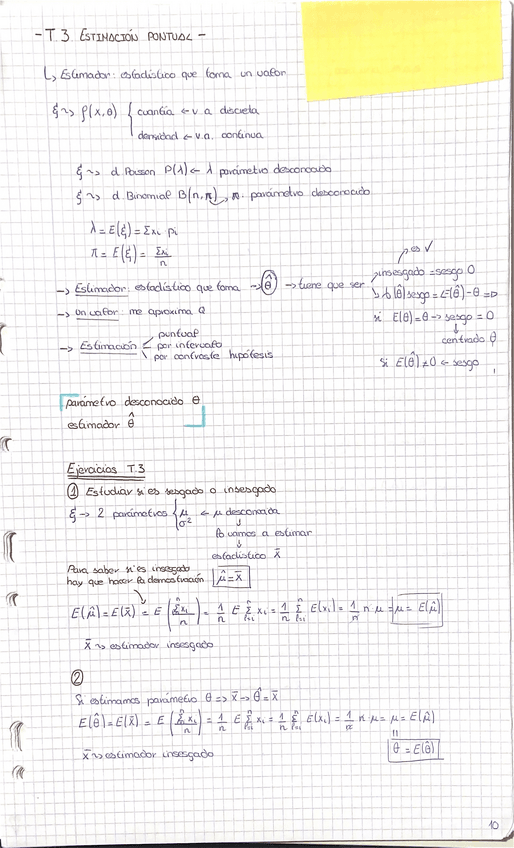 - T.3 ESTIMACIÓN PUNTUAL -
↳ Estimador: estadístico que toma un valor
ξ ~> ρ(x,θ) { cuantía ← v.a. discreta
densidad ← v.a. continua
ξ ~> d. Poisson P(λ) ← λ parámetro desconocido
ξ ~> d. Binomial B(n,π) → π: parámetro desconocido
λ = E(ξ) = Σxi pi
π = E(ξ) = Σxi / n
→ Estimador: estadístico que toma → θ̂ → tiene que ser
ρ es ✓
insesgado = sesgo 0
b(θ̂) sesgo = E(θ̂) - θ = 0
→ un valor: me aproxima a
si E(θ) = θ → sesgo = 0
↓
centrado θ
→ Estimación
puntual
por intervalo
por contraste hipótesis
Si E(θ̂) ≠ 0 ← sesgo
parámetro desconocido θ
estimador θ̂
Ejercicios T.3
① Estudiar si es sesgado o insesgado
ξ → 2 parámetros { μ ← μ desconocida
σ²
↓
lo vamos a estimar
↓
estadístico x̄
Para saber si es insesgado
hay que hacer la demostración μ̂ = x̄
E(μ̂) = E(x̄) = E (Σxi / n) = 1/n E Σ xi = 1/n Σ E(xi) = 1/n n μ = μ = E(μ̂)
x̄ ~> estimador insesgado
②
Si estimamos parámetro θ => x̄ → θ̂ = x̄
E(θ̂) = E(x̄) = E (Σxi / n) = 1/n E Σ xi = 1/n Σ E(xi) = 1/n n μ = μ = E(μ̂)
=
θ = E(θ̂)
x̄ ~> estimador insesgado
10